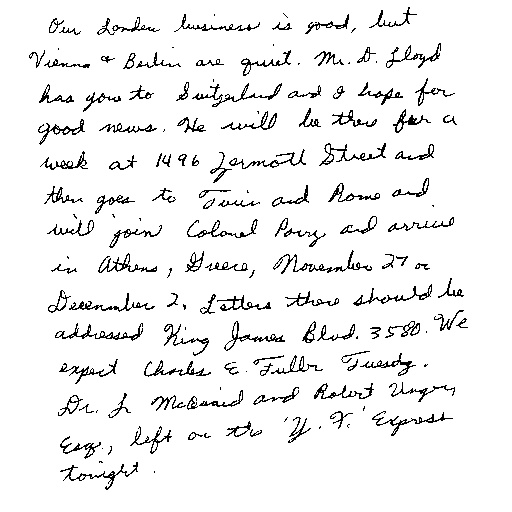 Our London business is good, but
Vienna + Berlin are quiet. Mr. D. Lloyd
has gone to Switzerland and I hope for
good news. He will be there for a
week at 1496 Zermott Street and
then goes to Turin and Rome and
will join Colonel Parry and arrive
in Athens, Greece, November 27 or
Decenmber 2. Letters there should be
addressed King James Blvd. 3580. We
expect Charles E. Fuller Tuesday.
Dr. L. McQuaid and Robert Unger,
Esq., left on the 'Y. X.' Express
tonight.